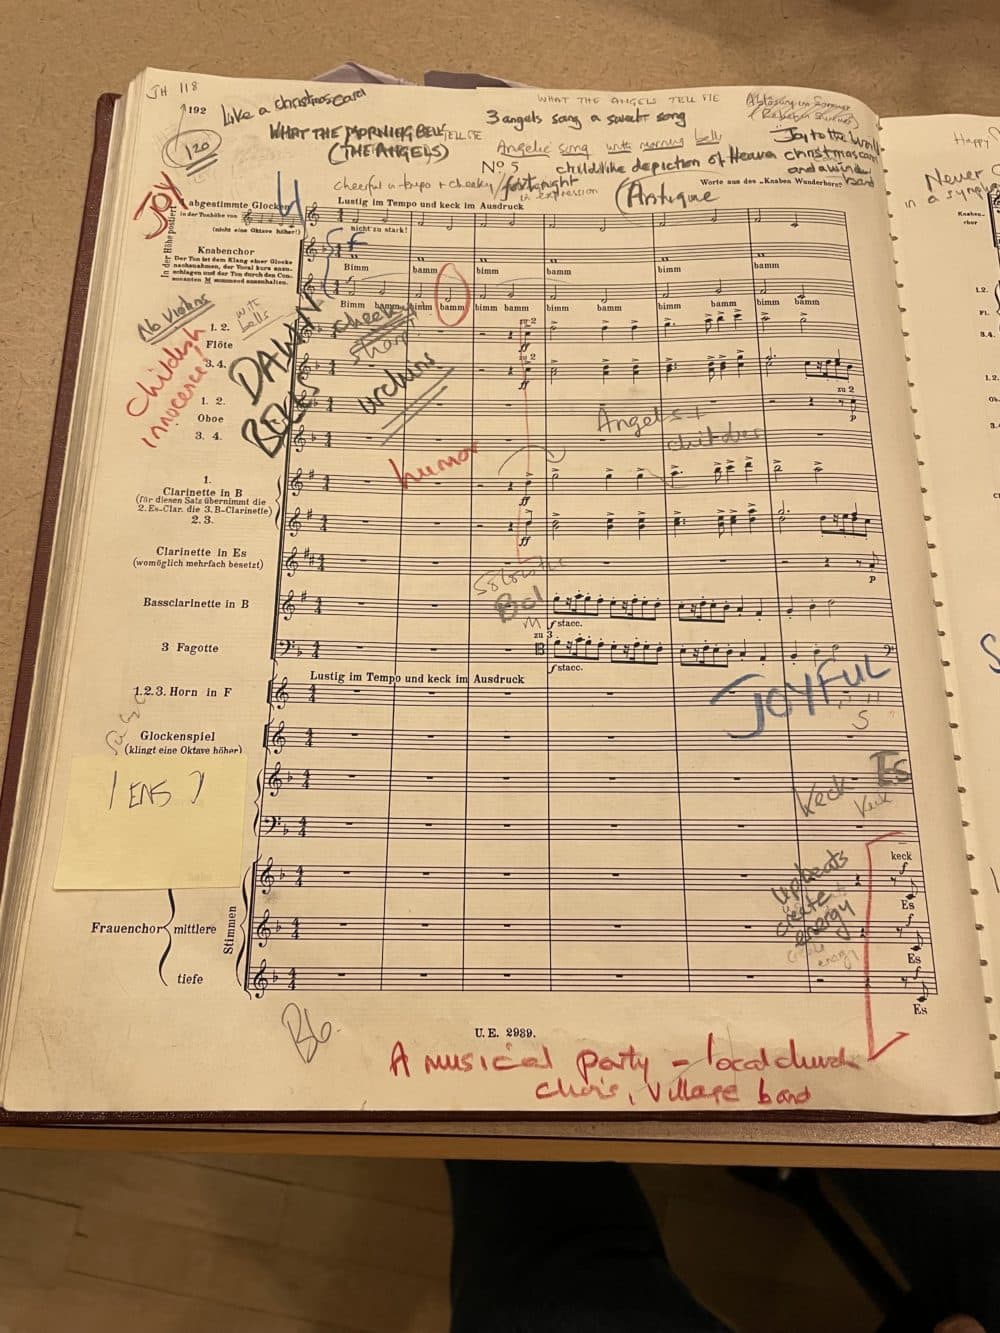 JH 118
192
120
Like a christmas card
WHAT THE MORNING BELLS TELL ME
(THE ANGELS)
WHAT THE ANGELS TELL ME
3 angels sang a sweet song
Angelic song with morning bells
Ablösung im Sommer
Joy to the World
childlike depiction of Heaven christmas card
and a wind band
No 5
cheerful in tempo + cheeky / forthright
in expression
(Antique
Worte aus des „Knaben Wunderhorn“
Happy
Never
in a
JOY
4 abgestimmte Glocken
in der Tonhöhe von
(nicht eine Oktave höher!)
Lustig im Tempo und keck im Ausdruck
nicht zu stark!
In der Höhe postiert
Knabenchor
Der Ton ist dem Klang einer Glocke
nachzuahmen, der Vocal kurz anzu-
schlagen und der Ton durch den Con-
sonanten M summend auszuhalten.
Bimm bamm bimm bamm bimm bamm
Bimm bamm bimm bamm bimm bamm bimm bamm bimm bamm bimm bamm
No Violins
with
bells
Childish
innocence
DAWN
BELLS
cheeky
sharp
urchins
humor
Angels +
1. 2.
Flöte
3. 4.
zu 2
ff
zu 2
ff
1. 2.
Oboe
3. 4.
zu 2
p
1.
Clarinette in B
(für diesen Satz übernimmt die
2. Es-Clar. die 3. B-Clarinette)
2. 3.
ff
ff
Clarinette in Es
(womöglich mehrfach besetzt)
p
Bassclarinette in B
f stacc.
3 Fagotte
zu 3
f stacc.
Lustig im Tempo und keck im Ausdruck
1. 2. 3. Horn in F
JOYFUL
Glockenspiel
(klingt eine Oktave höher)
S
1 ENS 7
Keck Es
Keck
Upbeats
create
energy
create
energy
keck
f
Es
f
Es
f
Es
Frauenchor
mittlere
tiefe
Stimmen
B6.
U. E. 2939.
A musical party – local church
choirs, village band